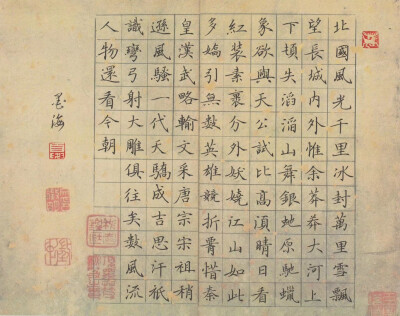 北國風光千里冰封萬里雪飄
望長城内外惟余莽莽大河上
下頓失滔滔山舞銀虵原馳蠟
象欲與天公試比高須晴日看
紅裝素裹分外妖嬈江山如此
多嬌引無數英雄競折腰惜秦
皇漢武略輸文采唐宗宋祖稍
遜風騷一代天驕成吉思汗祗
識彎弓射大雕俱往矣數風流
人物還看今朝
墨海